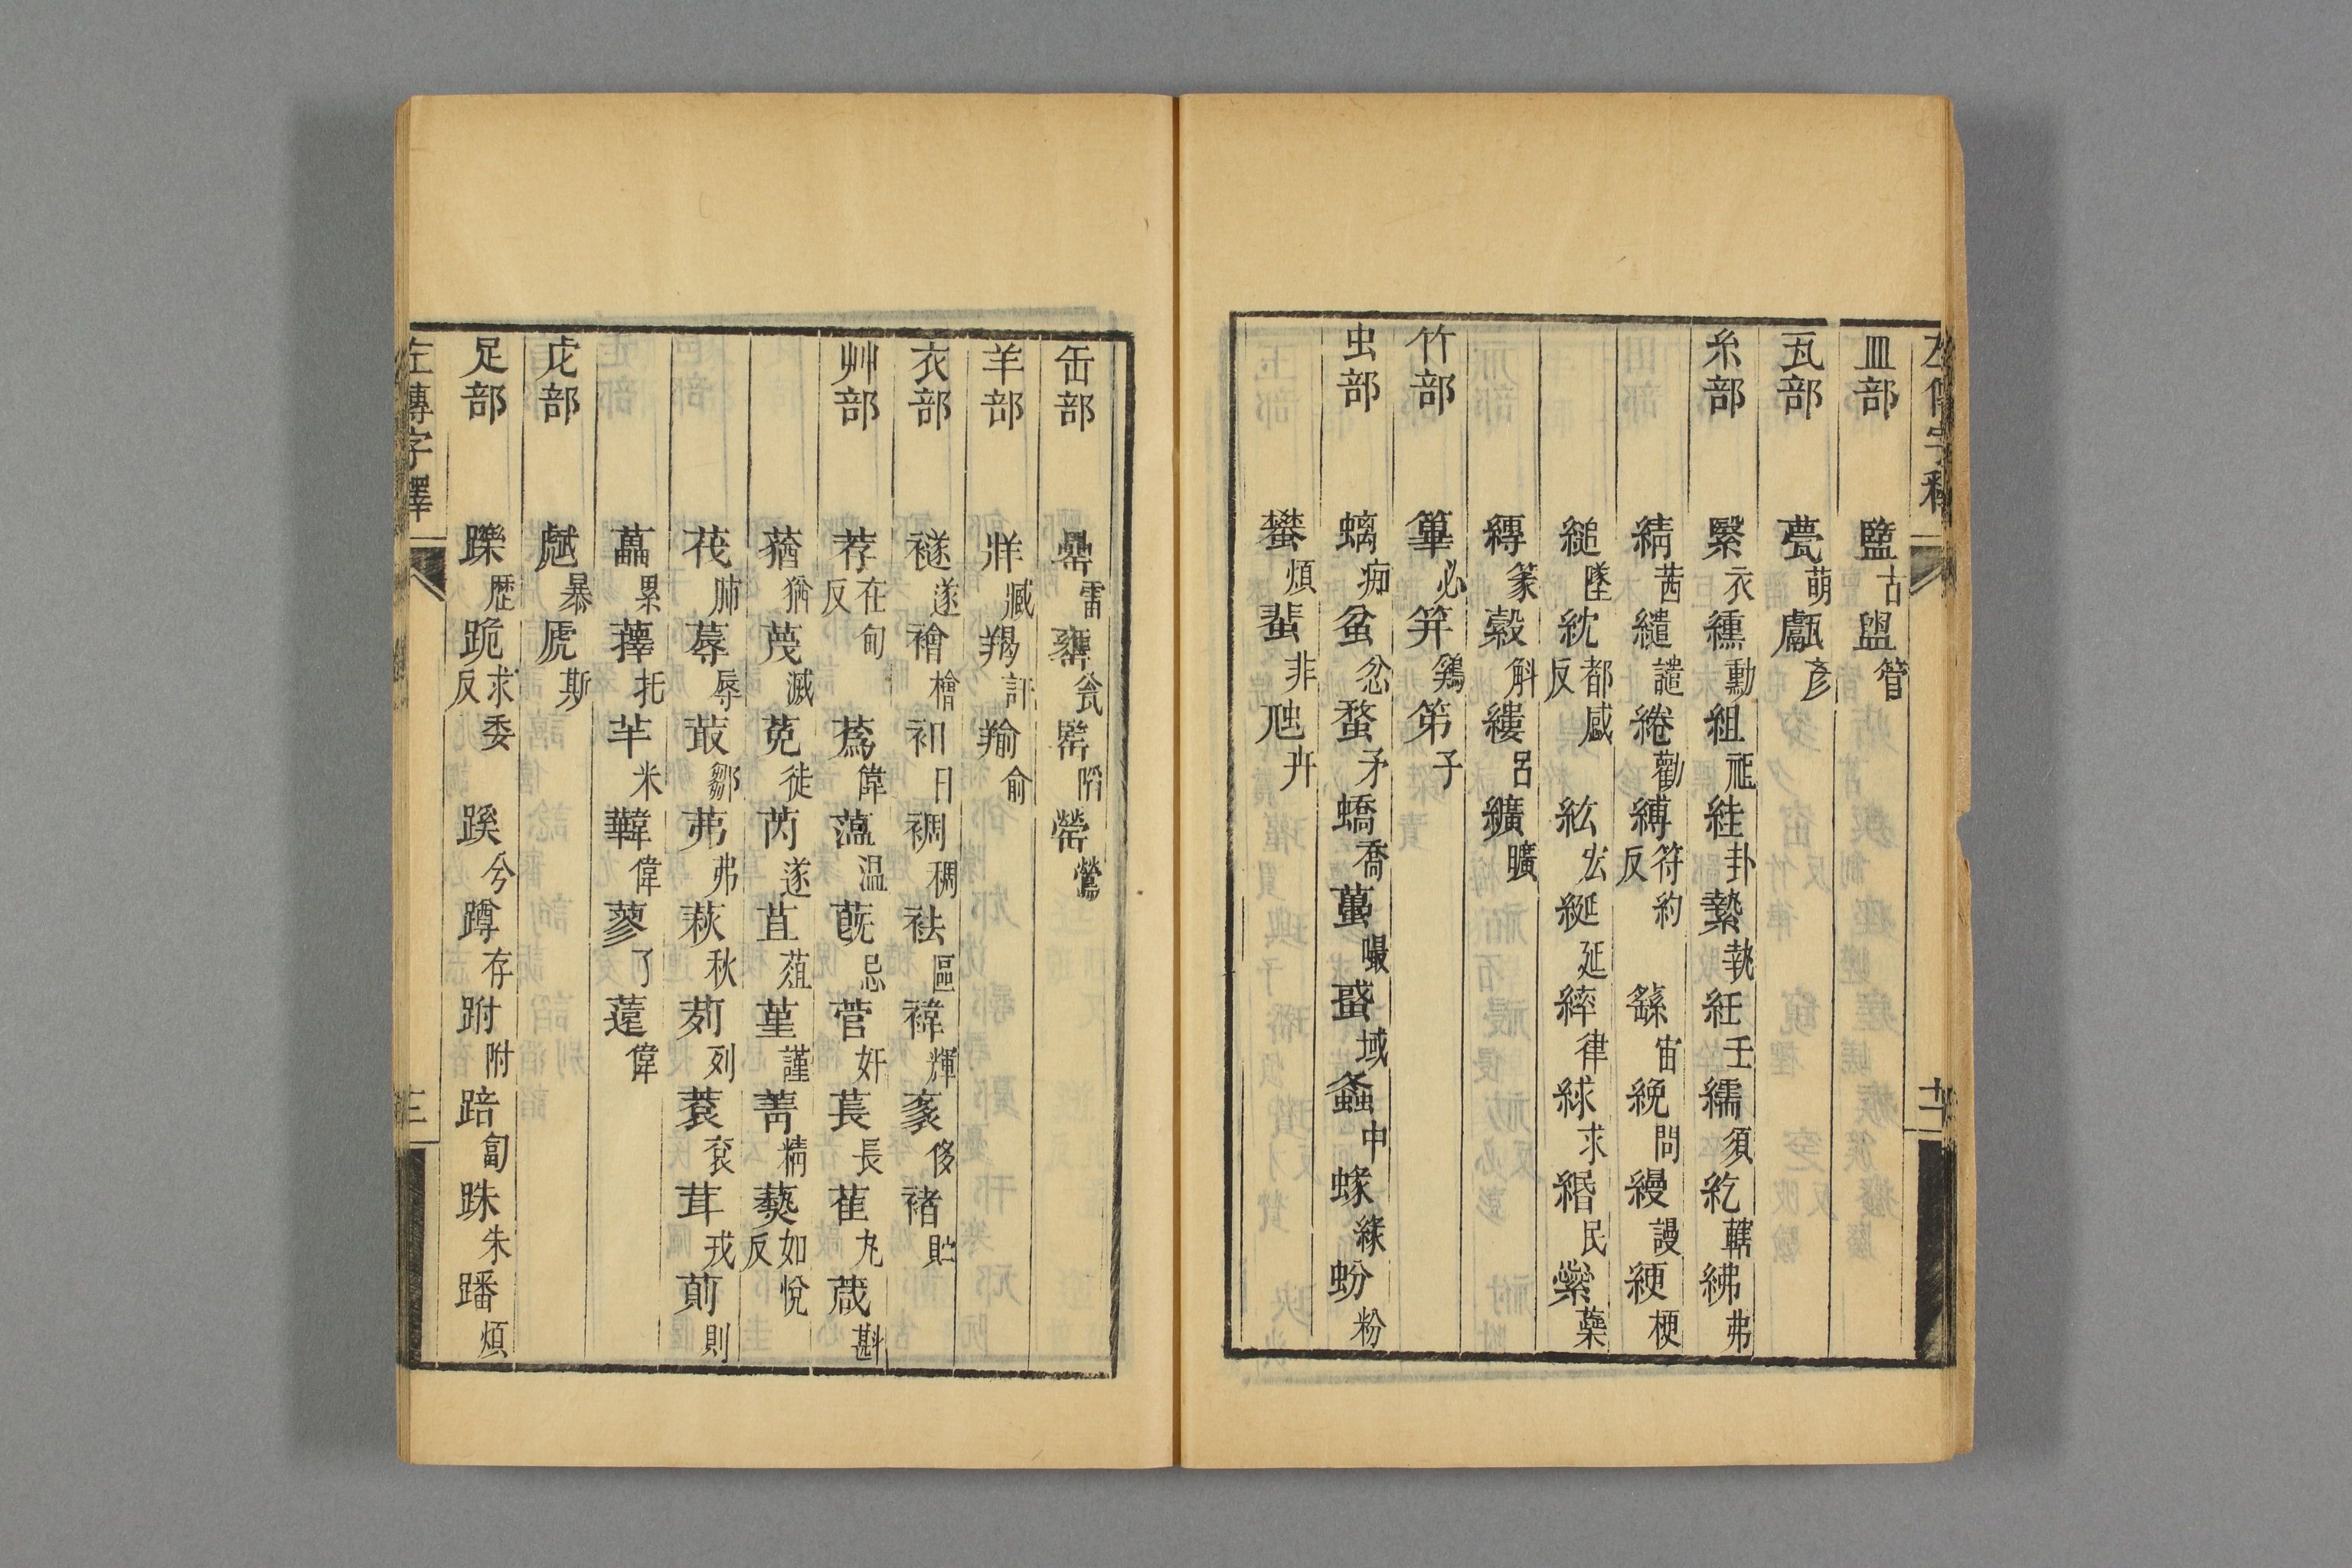 皿部 盬古 盥管
瓦部 甍萌 甗彥
糸部 緊衣 纁勳 組祖 絓卦 縶執 紝壬 繻須 紇轄 紼弗
綪茜 繾譴 綣勸 縛符約反 繇宙 絻問 縵謾 綆梗
縋墜 紞都感反 紘宏 綖延 繂律 絿求 緡民 縈蘂
縳篆 縠斛 縷呂 纊曠
竹部 篳必 笄鷄 笫子
虫部 螭痴 蚠忿 蝥矛 蟜喬 蠆嘬 蜮域 螽中 蝝緣 蚡粉
蠜煩 蜚非 虺卉
左傳字釋
缶部 罍雷 甕瓮 罶 罃鶯
羊部 牂臧 羯訐 羭俞
衣部 襚遂 襘檜 衵日 裯稠 祛區 褘輝 袲侈 褚貯
艸部 荐在甸反 蔿偉 薀温 蔇忌 菅奸 萇長 萑丸 葴斟
蕕猶 蔑滅 菟徒 芮遂 苴葅 堇謹 菁精 爇如悅反
茷肺 蓐辱 菆鄒 茀弗 萩秋 茢列 蓘衮 茸戎 萴則
藟累 蘀托 羋米 韡偉 蓼了 薳偉
虍部 虣暴 虒斯
足部 躒歴 跪求委反 蹊兮 蹲存 跗附 踣匐 跦朱 蹯煩
左傳字釋